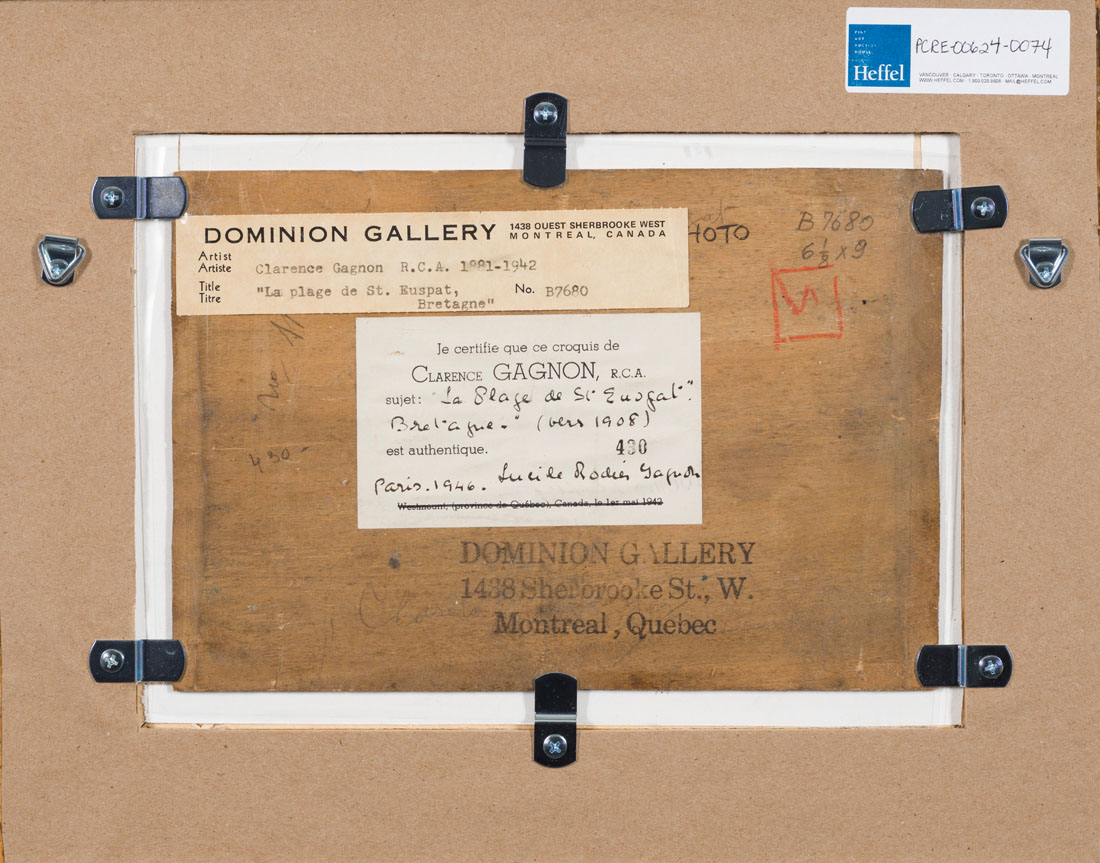 Heffel
PCRE-00624-0074
VANCOUVER · CALGARY · TORONTO · OTTAWA · MONTREAL
WWW.HEFFEL.COM · 1 800 528 9608 · MAIL@HEFFEL.COM
DOMINION GALLERY
1438 OUEST SHERBROOKE WEST
MONTREAL, CANADA
Artist
Artiste
Clarence Gagnon R.C.A. 1881-1942
Title
Titre
"La plage de St. Euspat,
Bretagne"
No. B7680
HOTO
B7680
6 1/8 x 9
No
430
Je certifie que ce croquis de
CLARENCE GAGNON, R.C.A.
sujet: "La Plage de St Enogat".
Bretagne." (vers 1908)
est authentique.
430
Paris. 1946. Lucile Rodier Gagnon
Westmount, (province de Québec), Canada, le 1er mai 1942
DOMINION GALLERY
1438 Sherbrooke St., W.
Montreal, Quebec